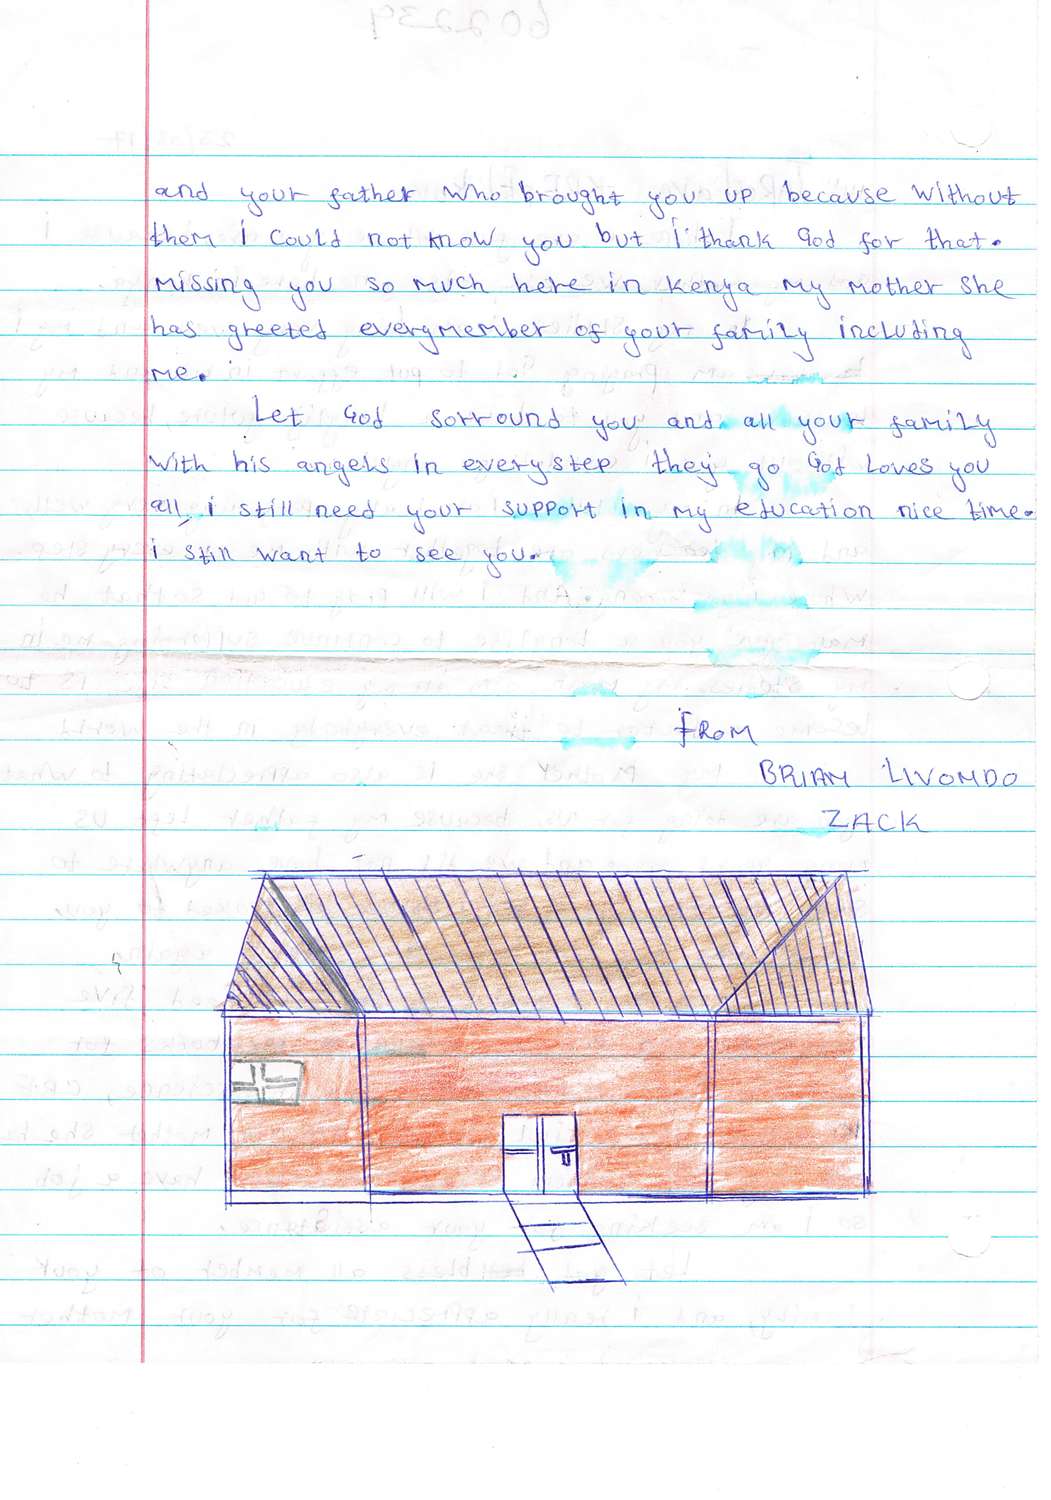 and your father who brought you up because without
them i could not know you but I thank God for that.
missing you so much here in Kenya my mother she
has greeted everymember of your family including
me.
Let God sorround you and all your family
with his angels in everystep they go God Loves you
all, i still need your support in my education nice time.
i still want to see you.
FROM
BRIAM LIVOMDO
ZACK